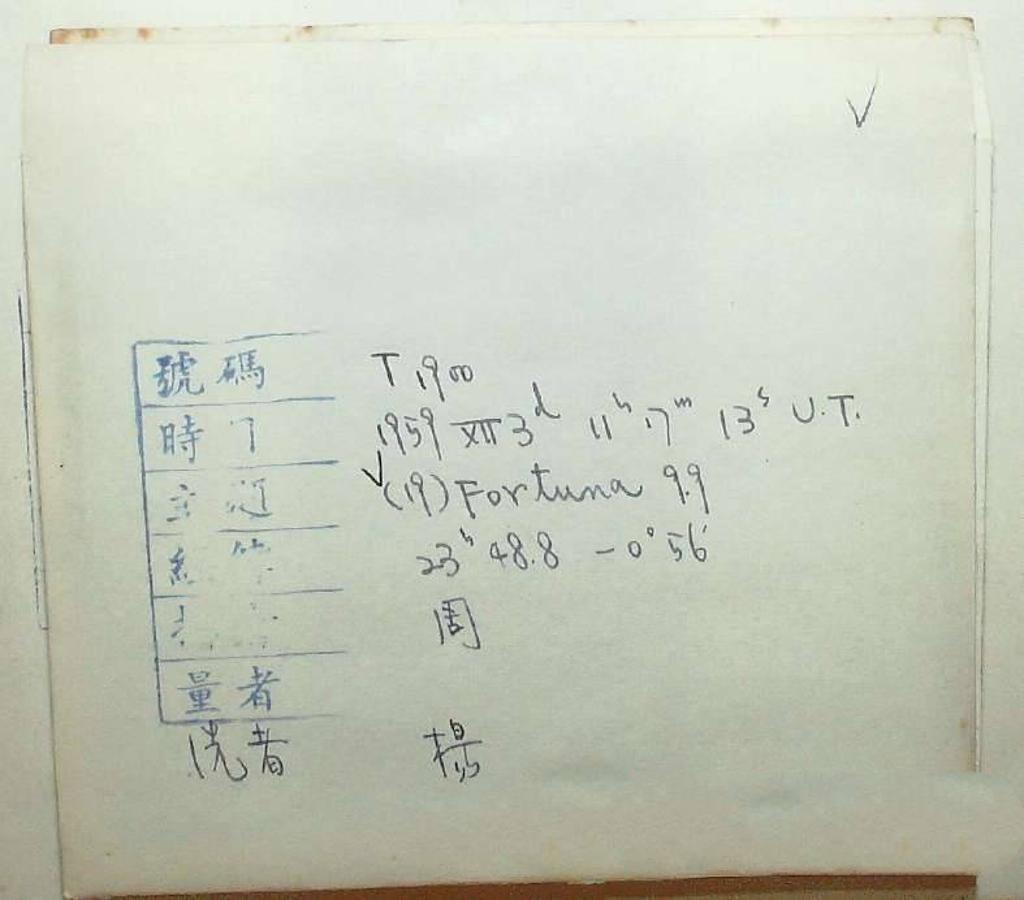 號碼 T 1900
時 1959 XII 3ᵈ 11ʰ 17ᵐ 13ˢ U.T.
(19) Fortuna 9.9
23ʰ 48.8 -0°56'
周
量者
洗者 楊